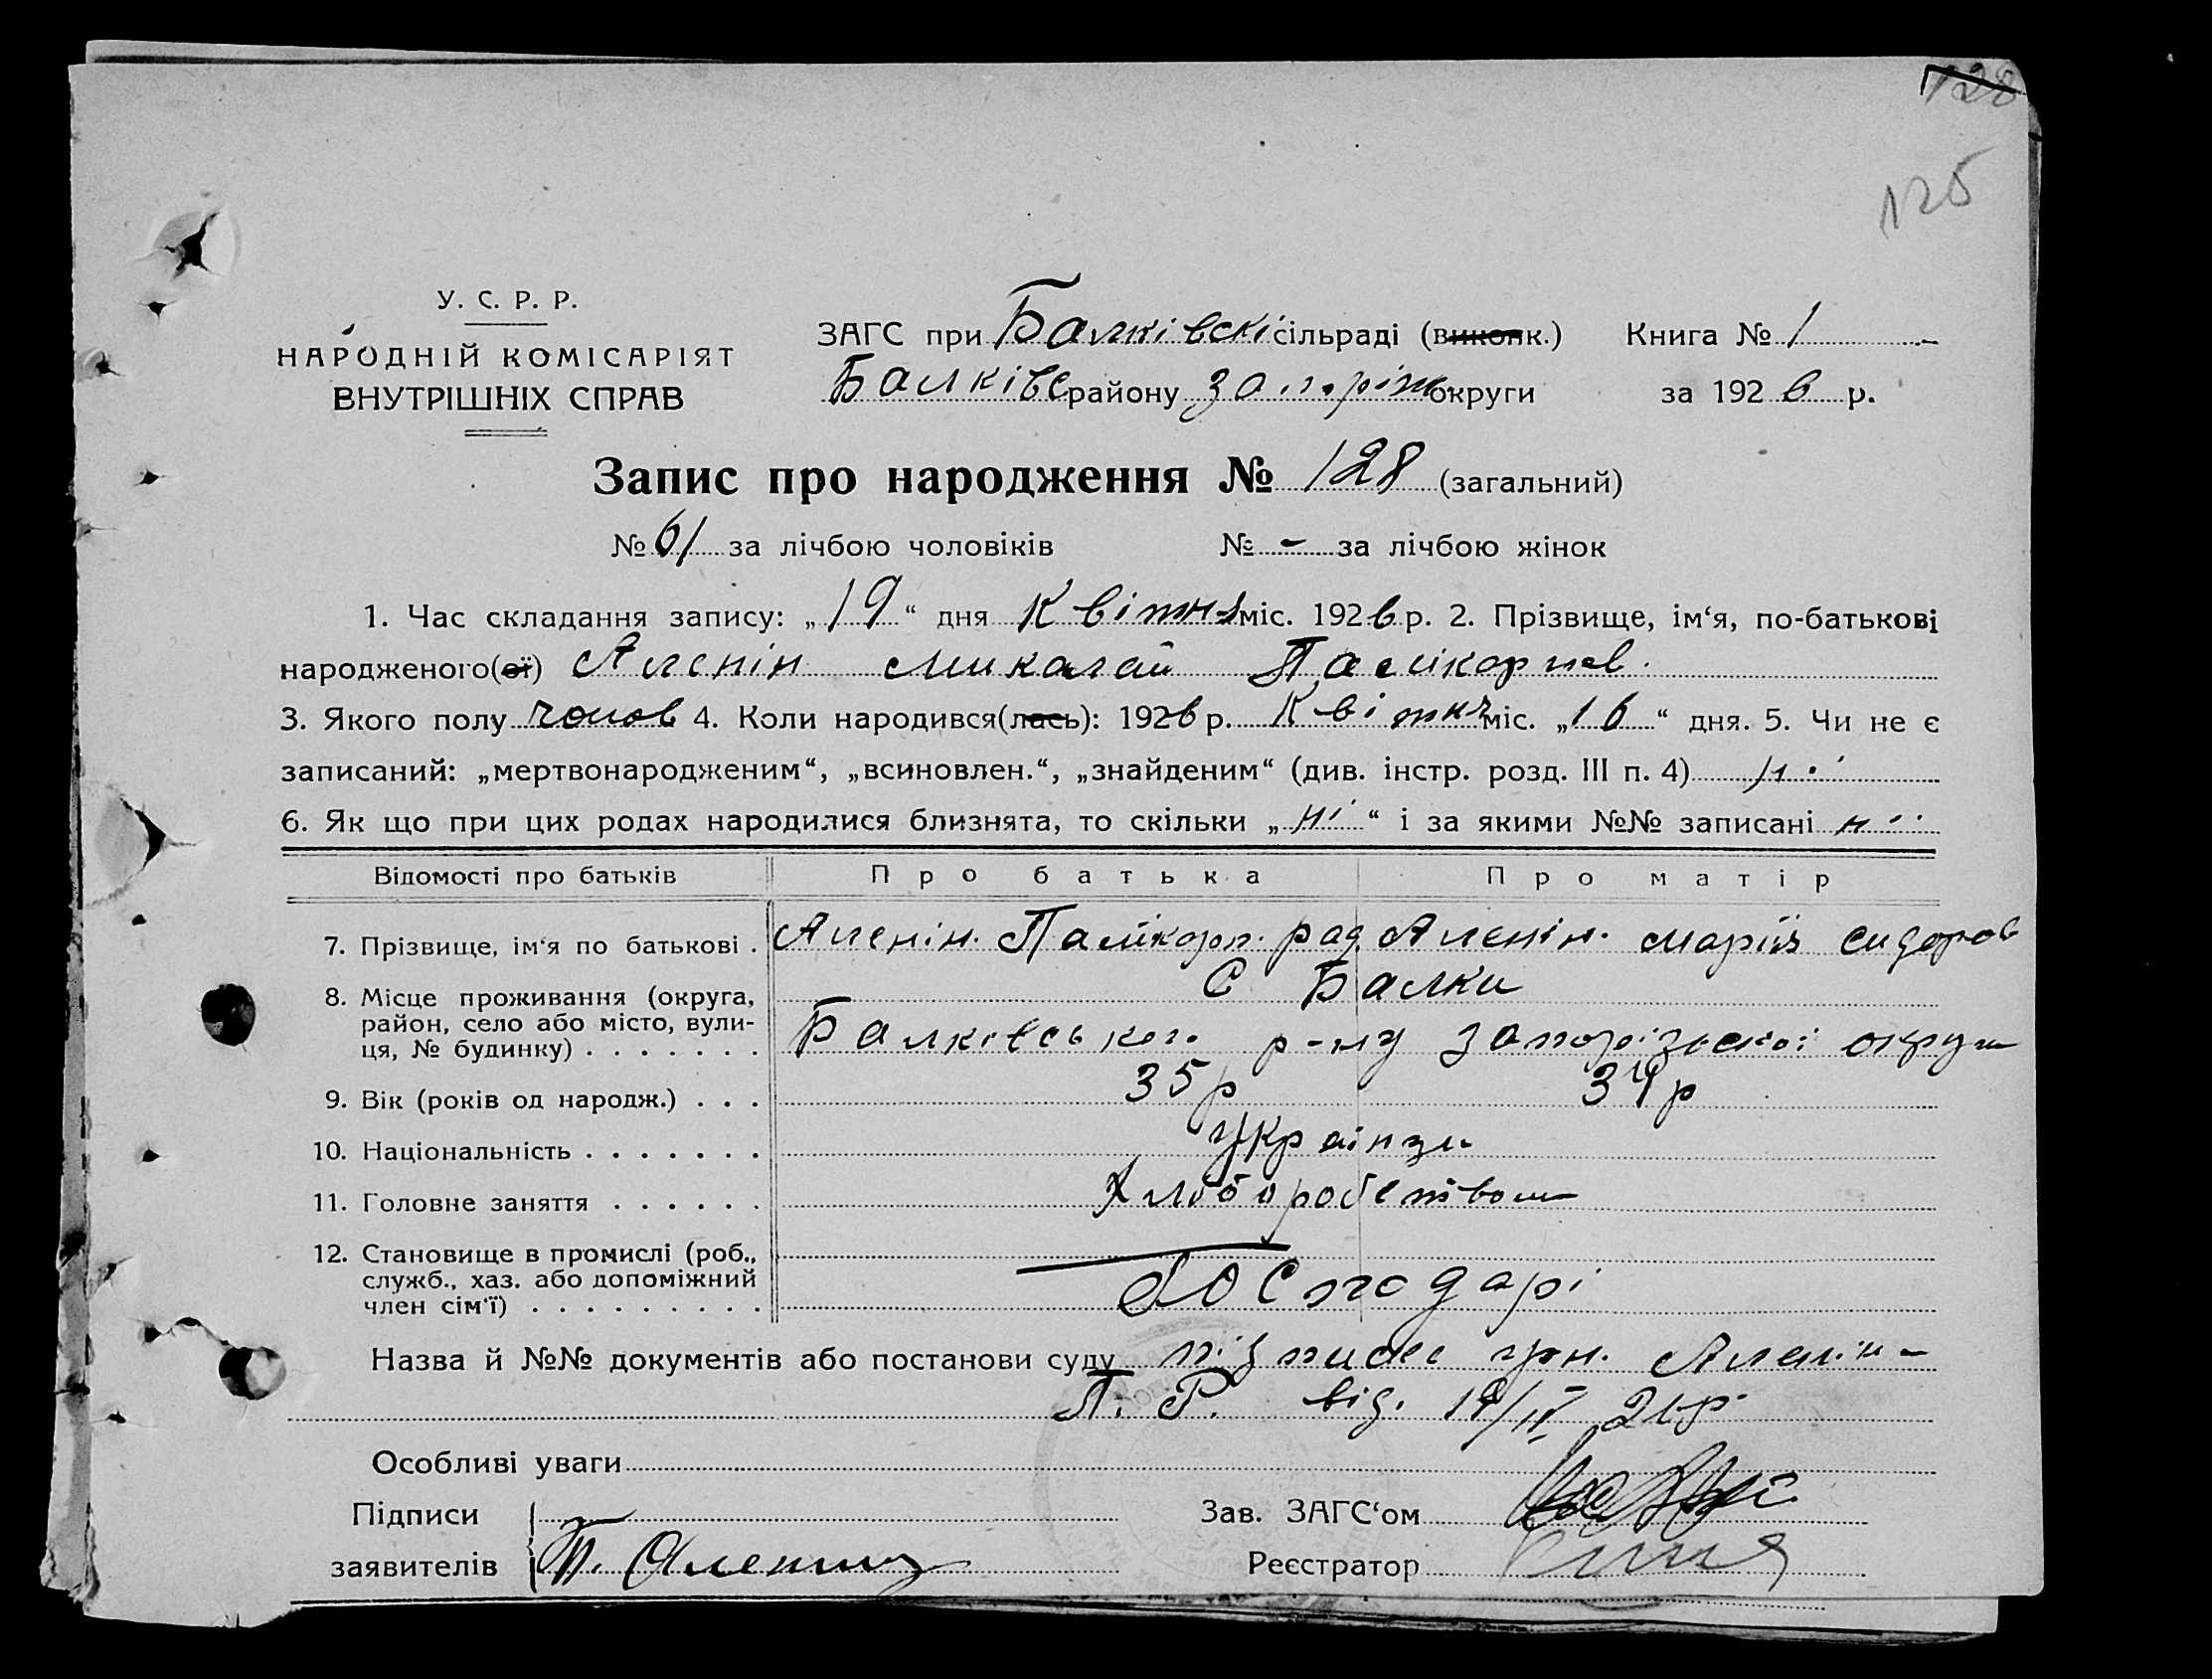 128
125
У. С. Р. Р.
НАРОДНІЙ КОМІСАРІЯТ
ВНУТРІШНІХ СПРАВ
ЗАГС при Балківскі сільраді (виконк.) Книга № 1
Балківс району запоріж округи за 192 6 р.
Запис про народження № 128 (загальний)
№ 61 за лічбою чоловіків № - за лічбою жінок
1. Час складання запису: „ 19 “ дня Квітня міс. 192 6 р. 2. Прізвище, ім‘я, по-батькові
народженого(ої) Аленін Миколай
3. Якого полу чолов 4. Коли народився(лась): 192 6 р. Квітня міс. „ 16 “ дня. 5. Чи не є
записаний: „мертвонародженим“, „всиновлен.“, „знайденим“ (див. інстр. розд. III п. 4) ні
6. Як що при цих родах народилися близнята, то скільки „ ні “ і за якими №№ записані ні
Відомості про батьків Про батька Про матір
7. Прізвище, ім‘я по батькові . Аленін. Аленін. Марія Сидоров
8. Місце проживання (округа, С Балки
район, село або місто, вули-
ця, № будинку) . . . . . . . Балківського р-ну Запорізської округи
9. Вік (років од народж.) . . . 35 р 34 р
10. Національність . . . . . . . Українці
11. Головне заняття . . . . . . Хліборобством
12. Становище в промислі (роб.,
служб., хаз. або допоміжний
член сім‘ї) . . . . . . . . . . Господарі
Назва й №№ документів або постанови суду підписс грн. Аленін-
П. Р. від. 19/IV 26р
Особливі уваги
Підписи Зав. ЗАГС‘ом
заявителів П. Аленин Реєстратор